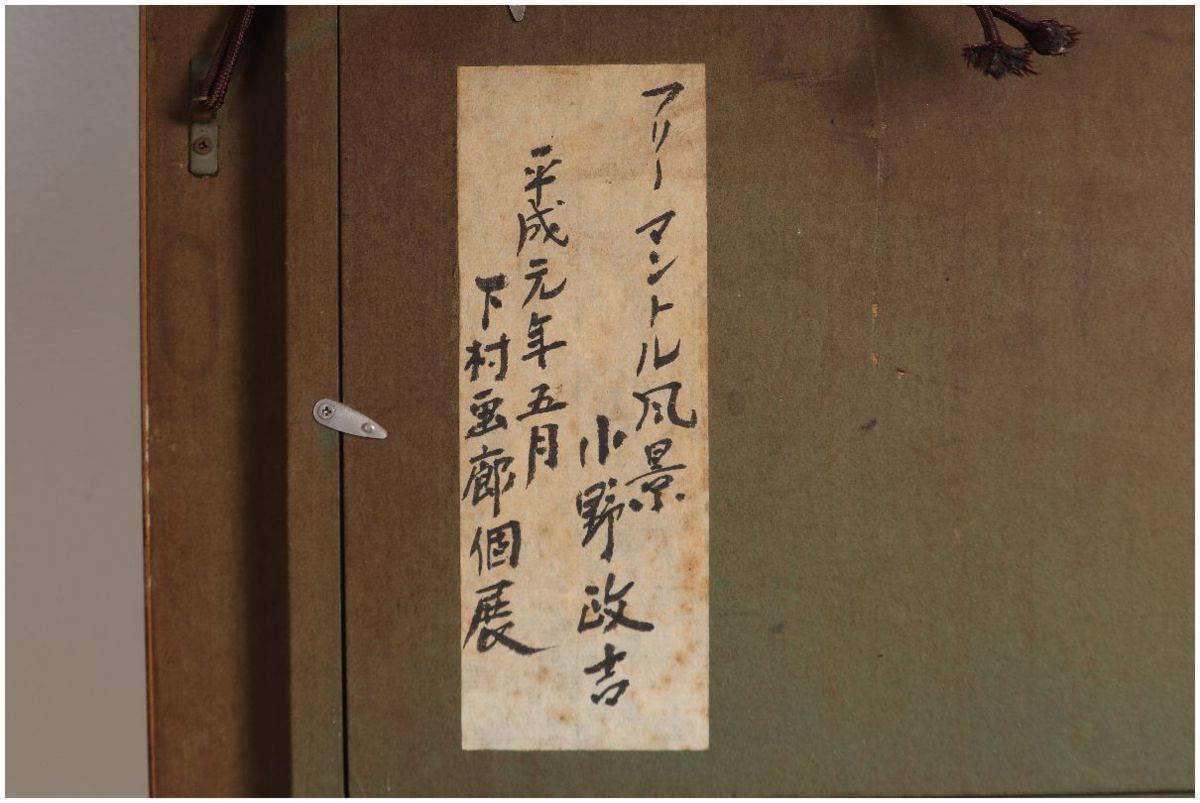 フリーマントル風景
小野政吉
平成元年五月
下村画廊個展